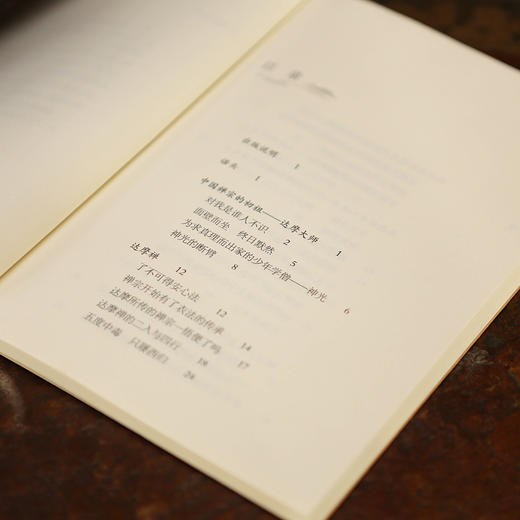 目录
出版说明 1
话头 1
中国禅宗的初祖——达摩大师 1
对我是谁人不识 2
面壁而坐 终日默然 5
为求真理而出家的少年学僧——神光 6
神光的断臂 8
达摩禅 12
了不可得安心法 12
禅宗开始有了衣法的传承 14
达摩所传的禅宗一悟便了吗 17
达摩禅的二入与四行 18
五度中毒 只履西归 24